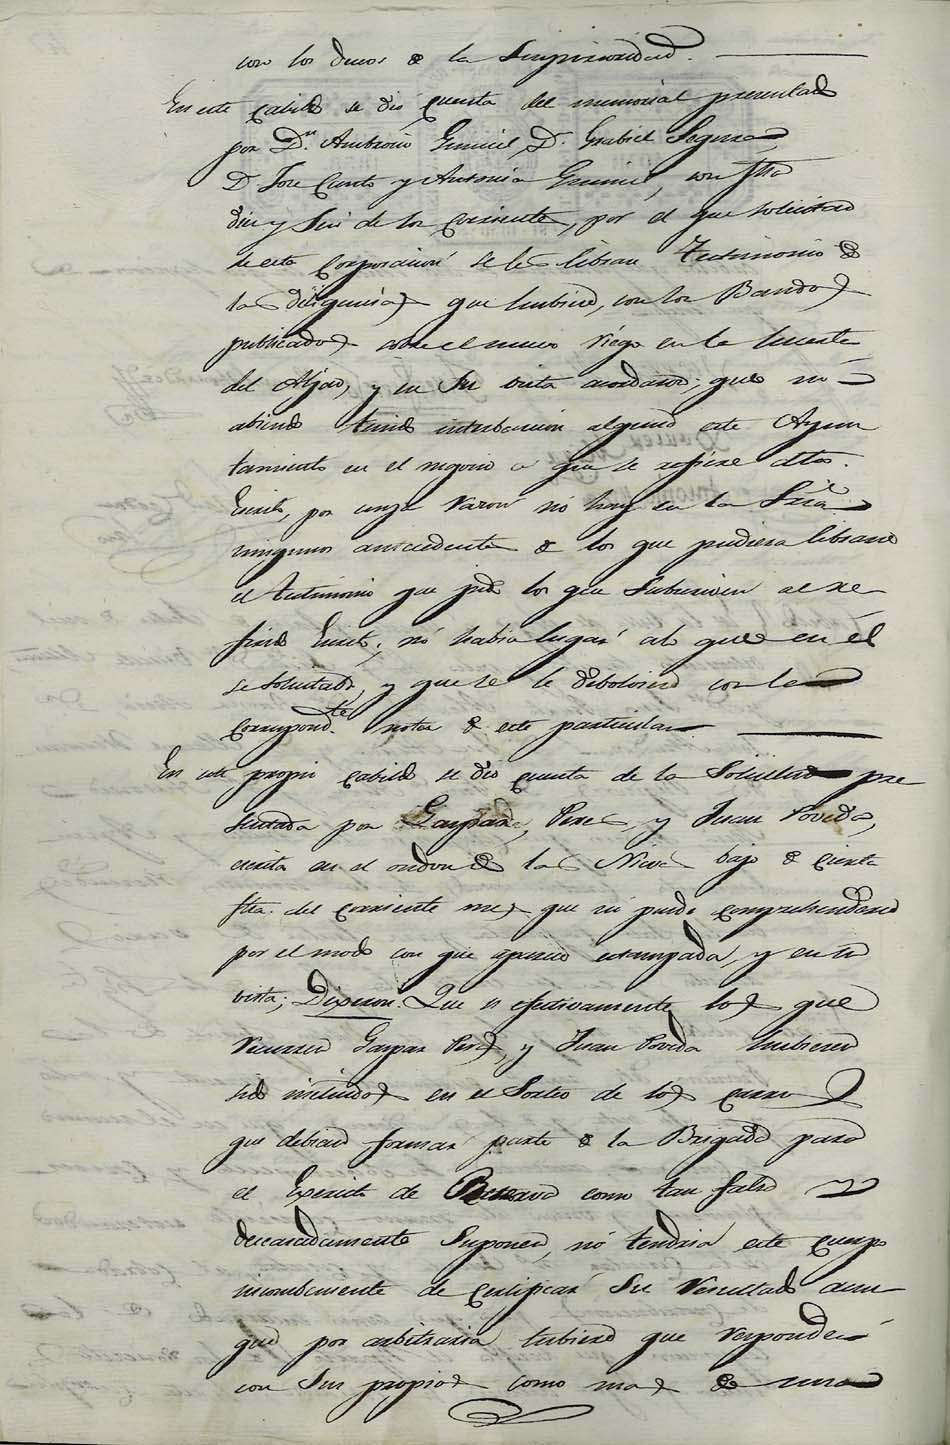 con los de la Superioridad.
En este Cabildo se dió Cuenta del memorial presentado
por Dn. Ambrosio Gumiel, D. Grabiel Segura,
D Jose Canto y Antonio Gumiel, con fha
diez y seis de los corriente, por el que solicitan
de esta Corporacion se les libran Testimonio de
las diligencias que hubiere, con los Bandos
publicados sobre el nuevo riego en la huerta
del Aljao, y en su vista acordaron; que no
abiendo tenido interbencion alguna este Ayun
tamiento en el negocio a que se refiere dho.
Escrito, por cuya razon no hay en la Sria
ningunos antecedentes de los que pudiera librarse
el testimonio que piden los que subscriven al re
ferido Escrito; no habia lugar al que en él
se solicitaba, y que se le debolviere con la
correspondte. nota de este particular.
En este propio Cabildo se dió cuenta de la Solicitud pre
sentada por Gaspar Peres y Juan Poveda,
escrita en el de las Nieves bajo de cierta
fha. del corriente mes que no puede comprehenderse
por el modo con que aparece estampada, y en su
vista; Dixeron. Que si efectivamente los que
recurren Gaspar Peres, y Juan Poveda hubieren
sido incluidos en el Sorteo de los carros
que debian formar parte de la Brigada para
el Exercito de Reserva como tan falso y
descaradamente suponen, no tendria este cuerpo
incombeniente de Certificar su resultado aun
que por arbitraria tubiere que responder
con sus propios como mas de una